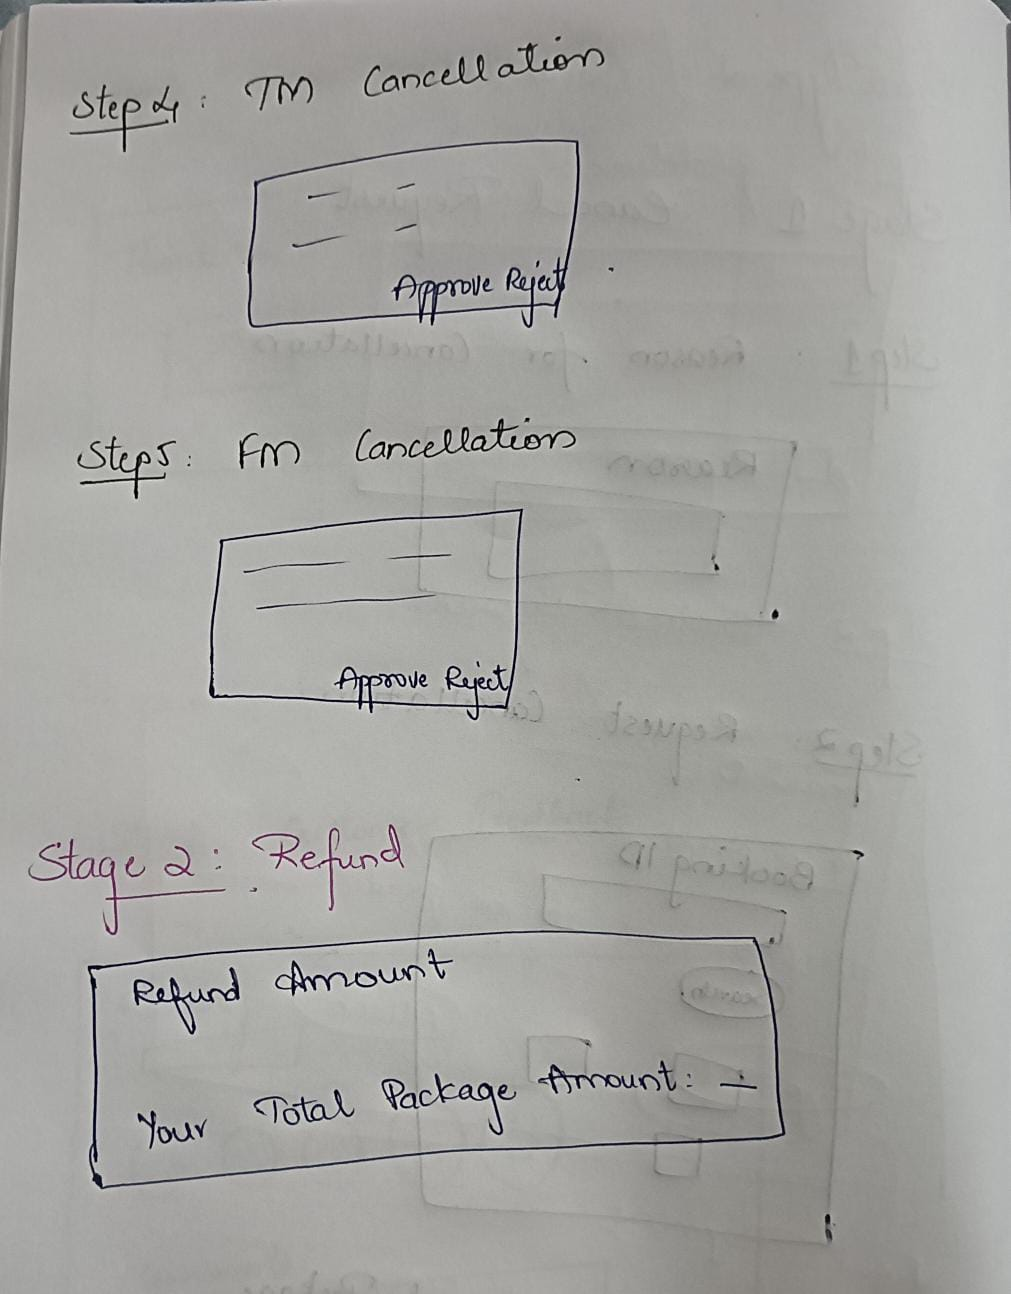 Step 4: TM Cancellation
Approve Reject
Step 5: FM Cancellation
Approve Reject
Stage 2: Refund
Refund Amount
Your Total Package Amount: —